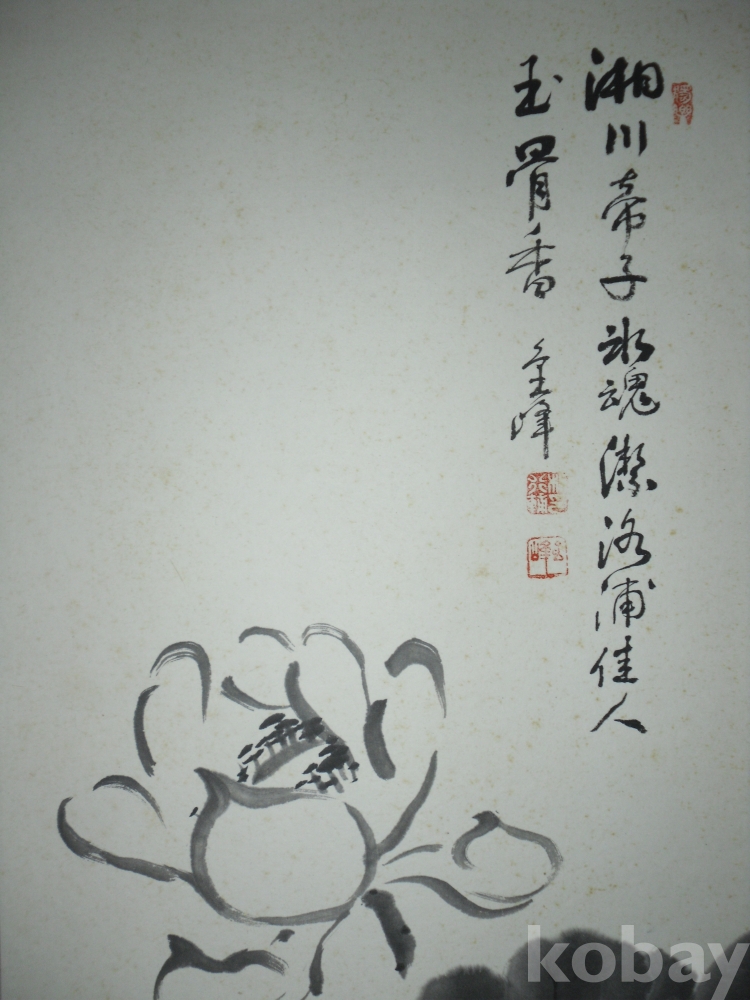 湘川帝子氷魂潔洛浦佳人
玉骨香
金峰
kobay